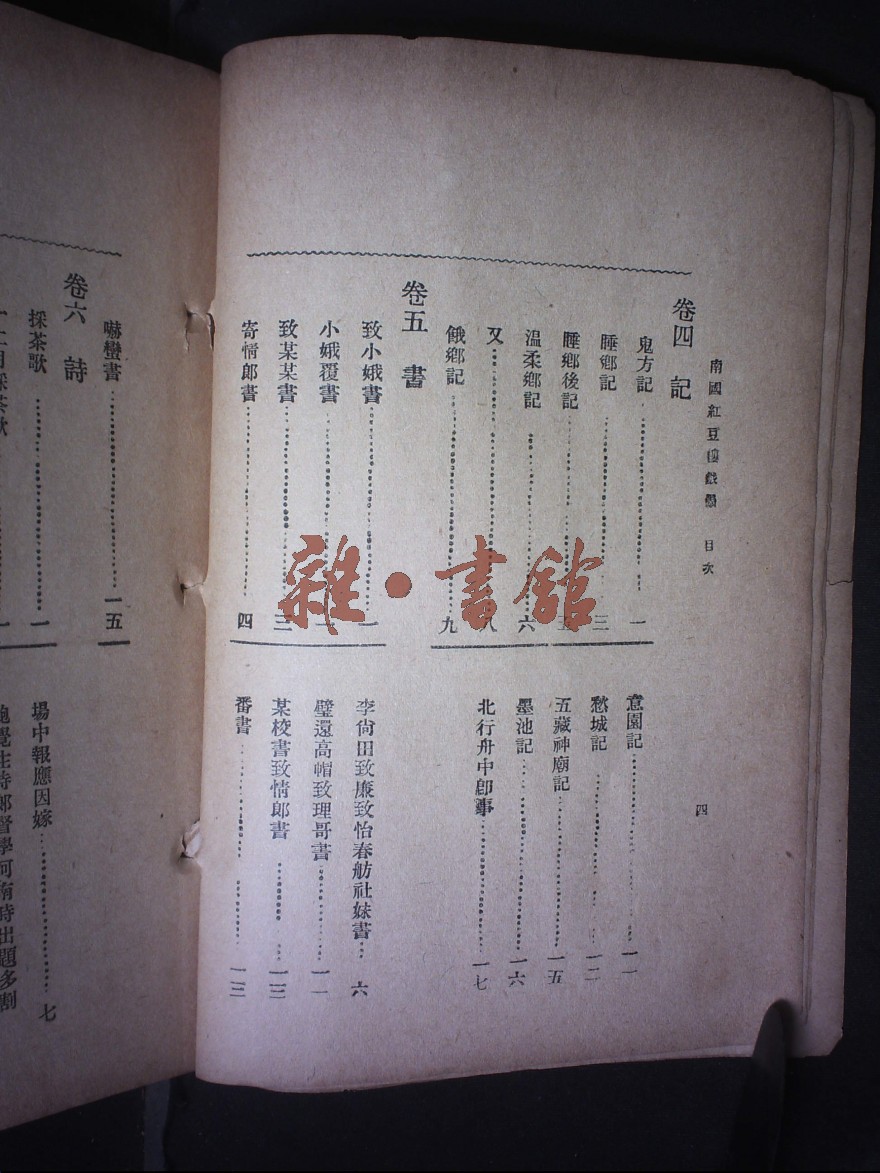 南國紅豆樓戲墨 目次
四
卷四 記
鬼方記 一
睡鄉記 三
睡鄉後記 五
溫柔鄉記 六
又 八
餓鄉記 九
意園記 一一
愁城記 一二
五藏神廟記 一五
墨池記 一六
北行舟中卽事 一七
卷五 書
致小娥書 一
小娥覆書
致某某書 三
寄情郎書 四
李尙田致廉致怡春舫社妹書 六
璧還高帽致理哥書 一一
某校書致情郎書 一三
番書 一三
嚇蠻書 一五
卷六 詩
採茶歌 一
十二月採茶歌
場中報應因嫁 七
鮑覺生侍郎督學河南時出題多割
雜·書館